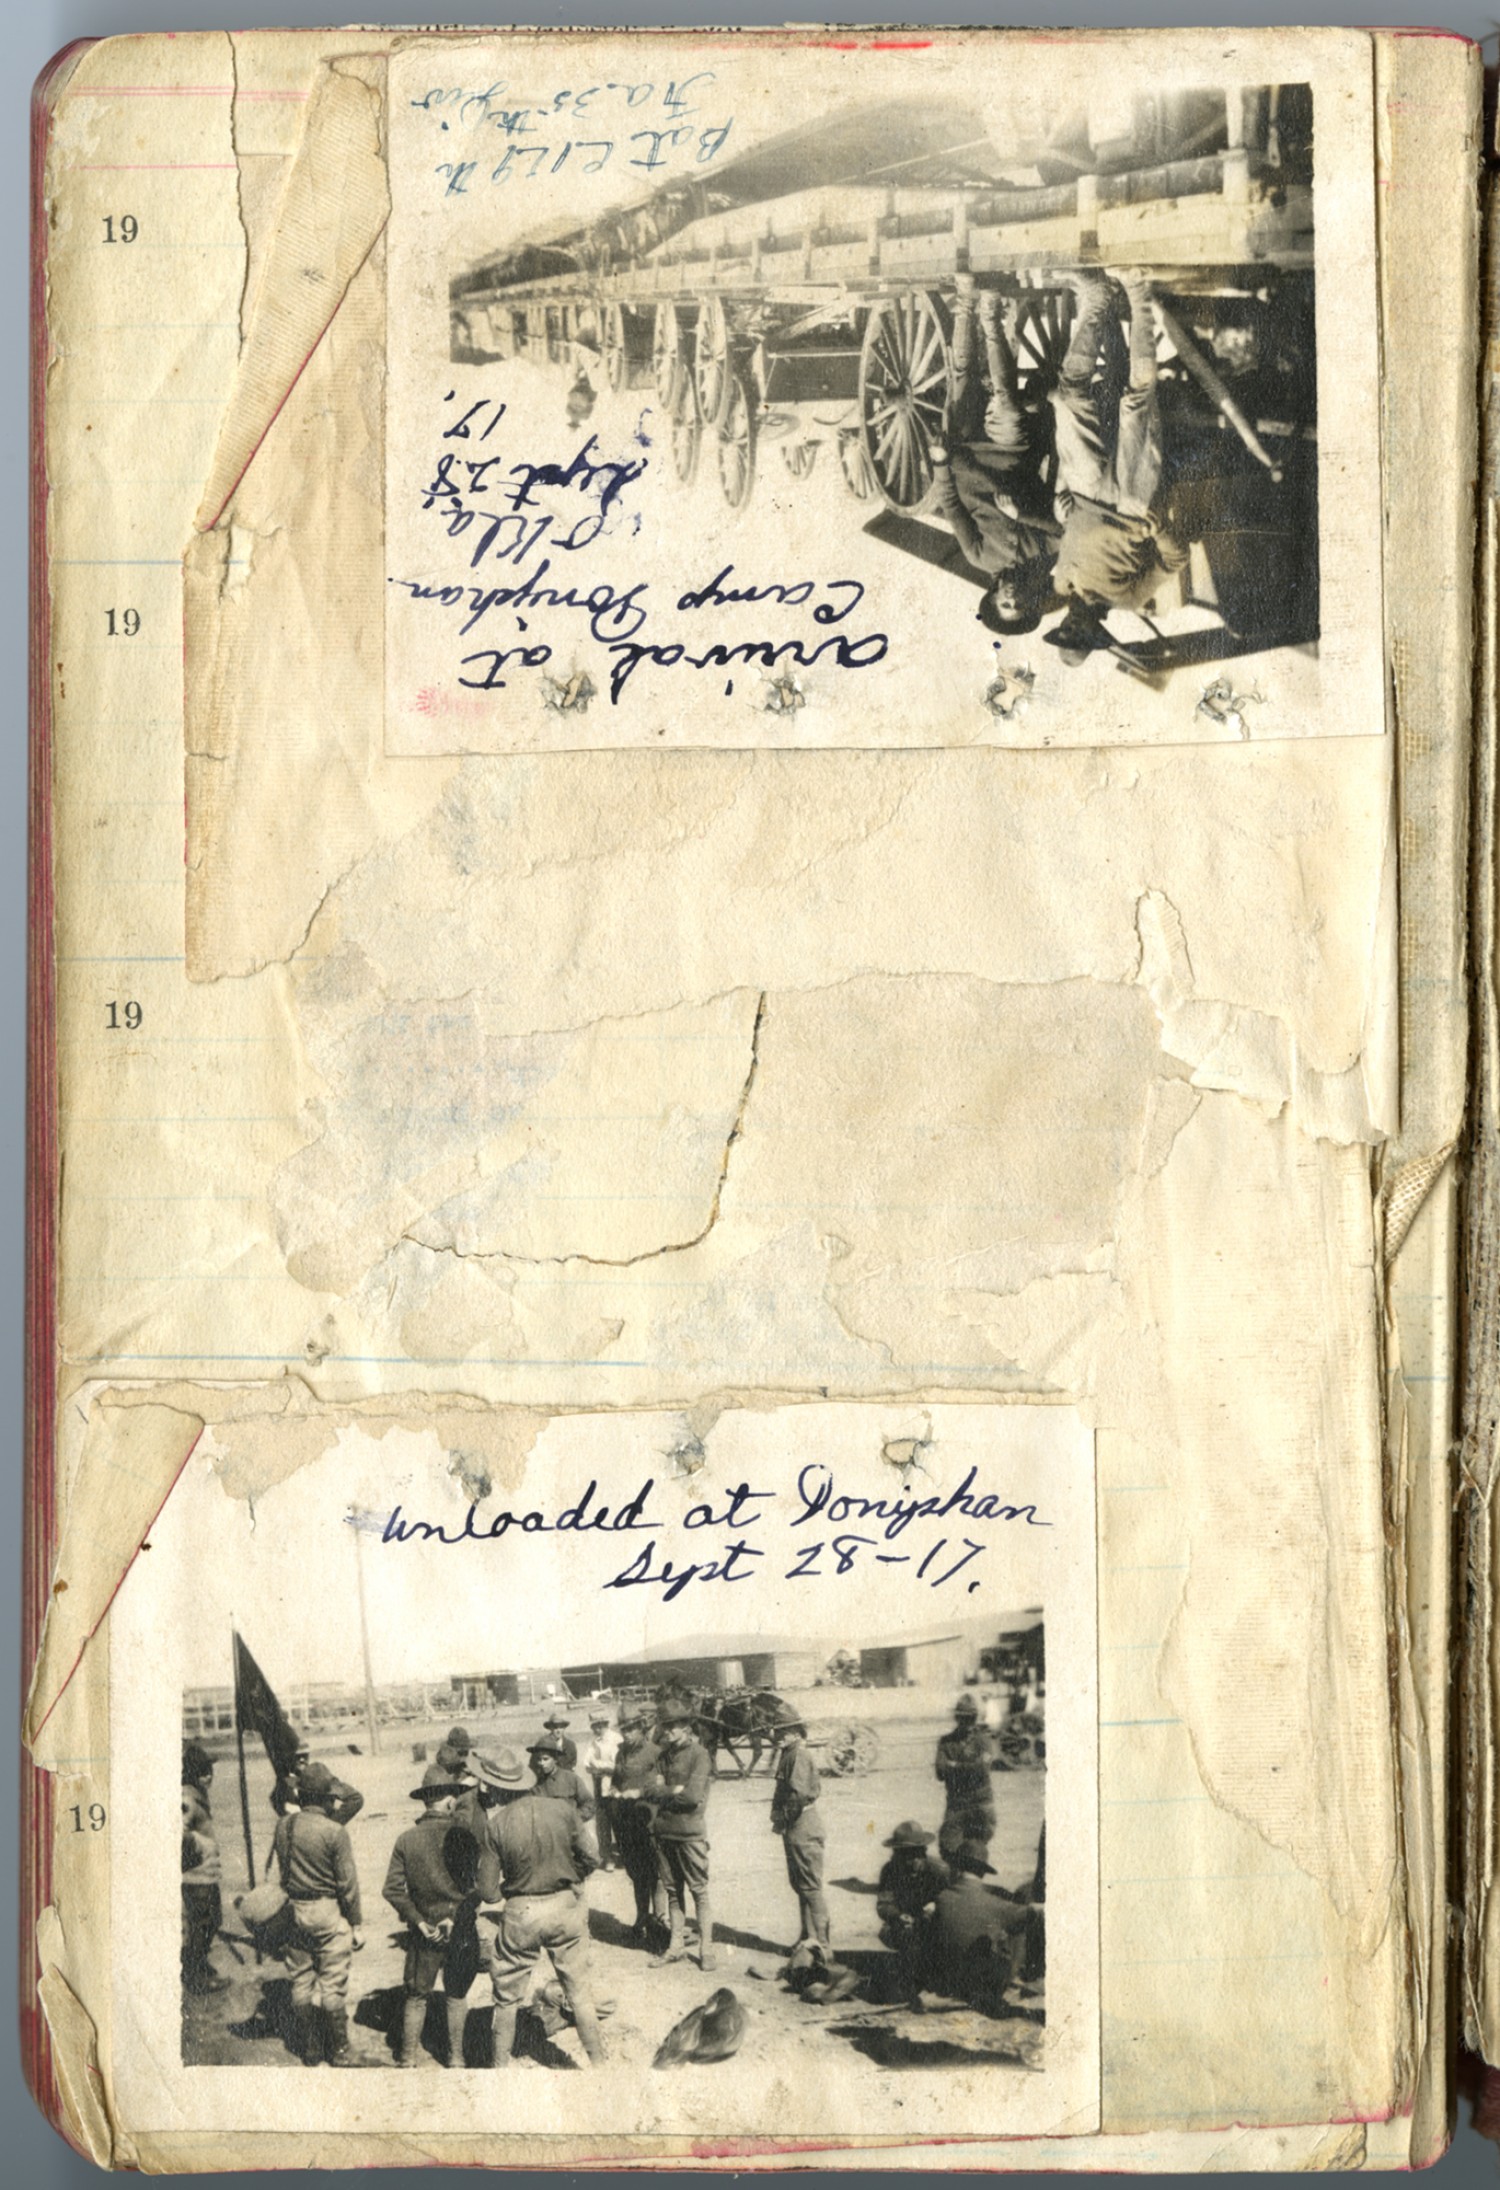 19
19
19
19
arrival at
Camp Doniphan.
Okla
Sept 28
17.
Bat E 129 th
F.a. 35 th Div
unloaded at Doniphan
Sept 28-17.